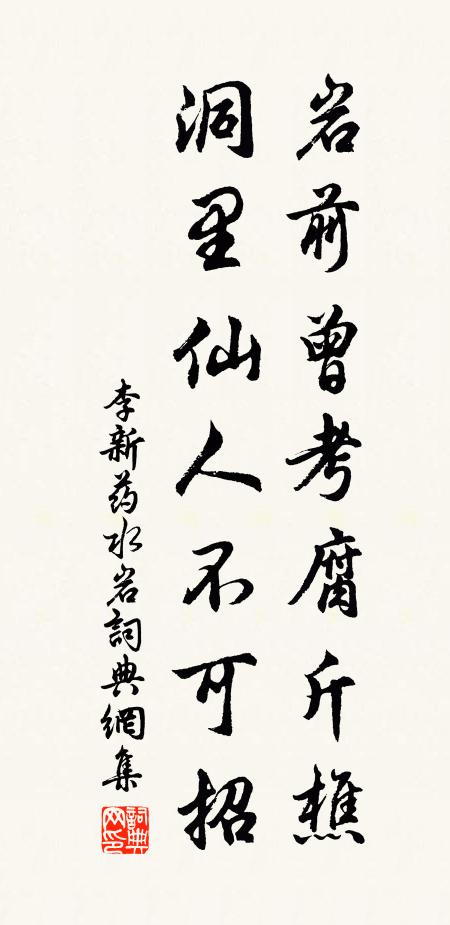 岩前曾考腐斤樵
洞里仙人不可招
李新药水岩詞典網集
詞典网印